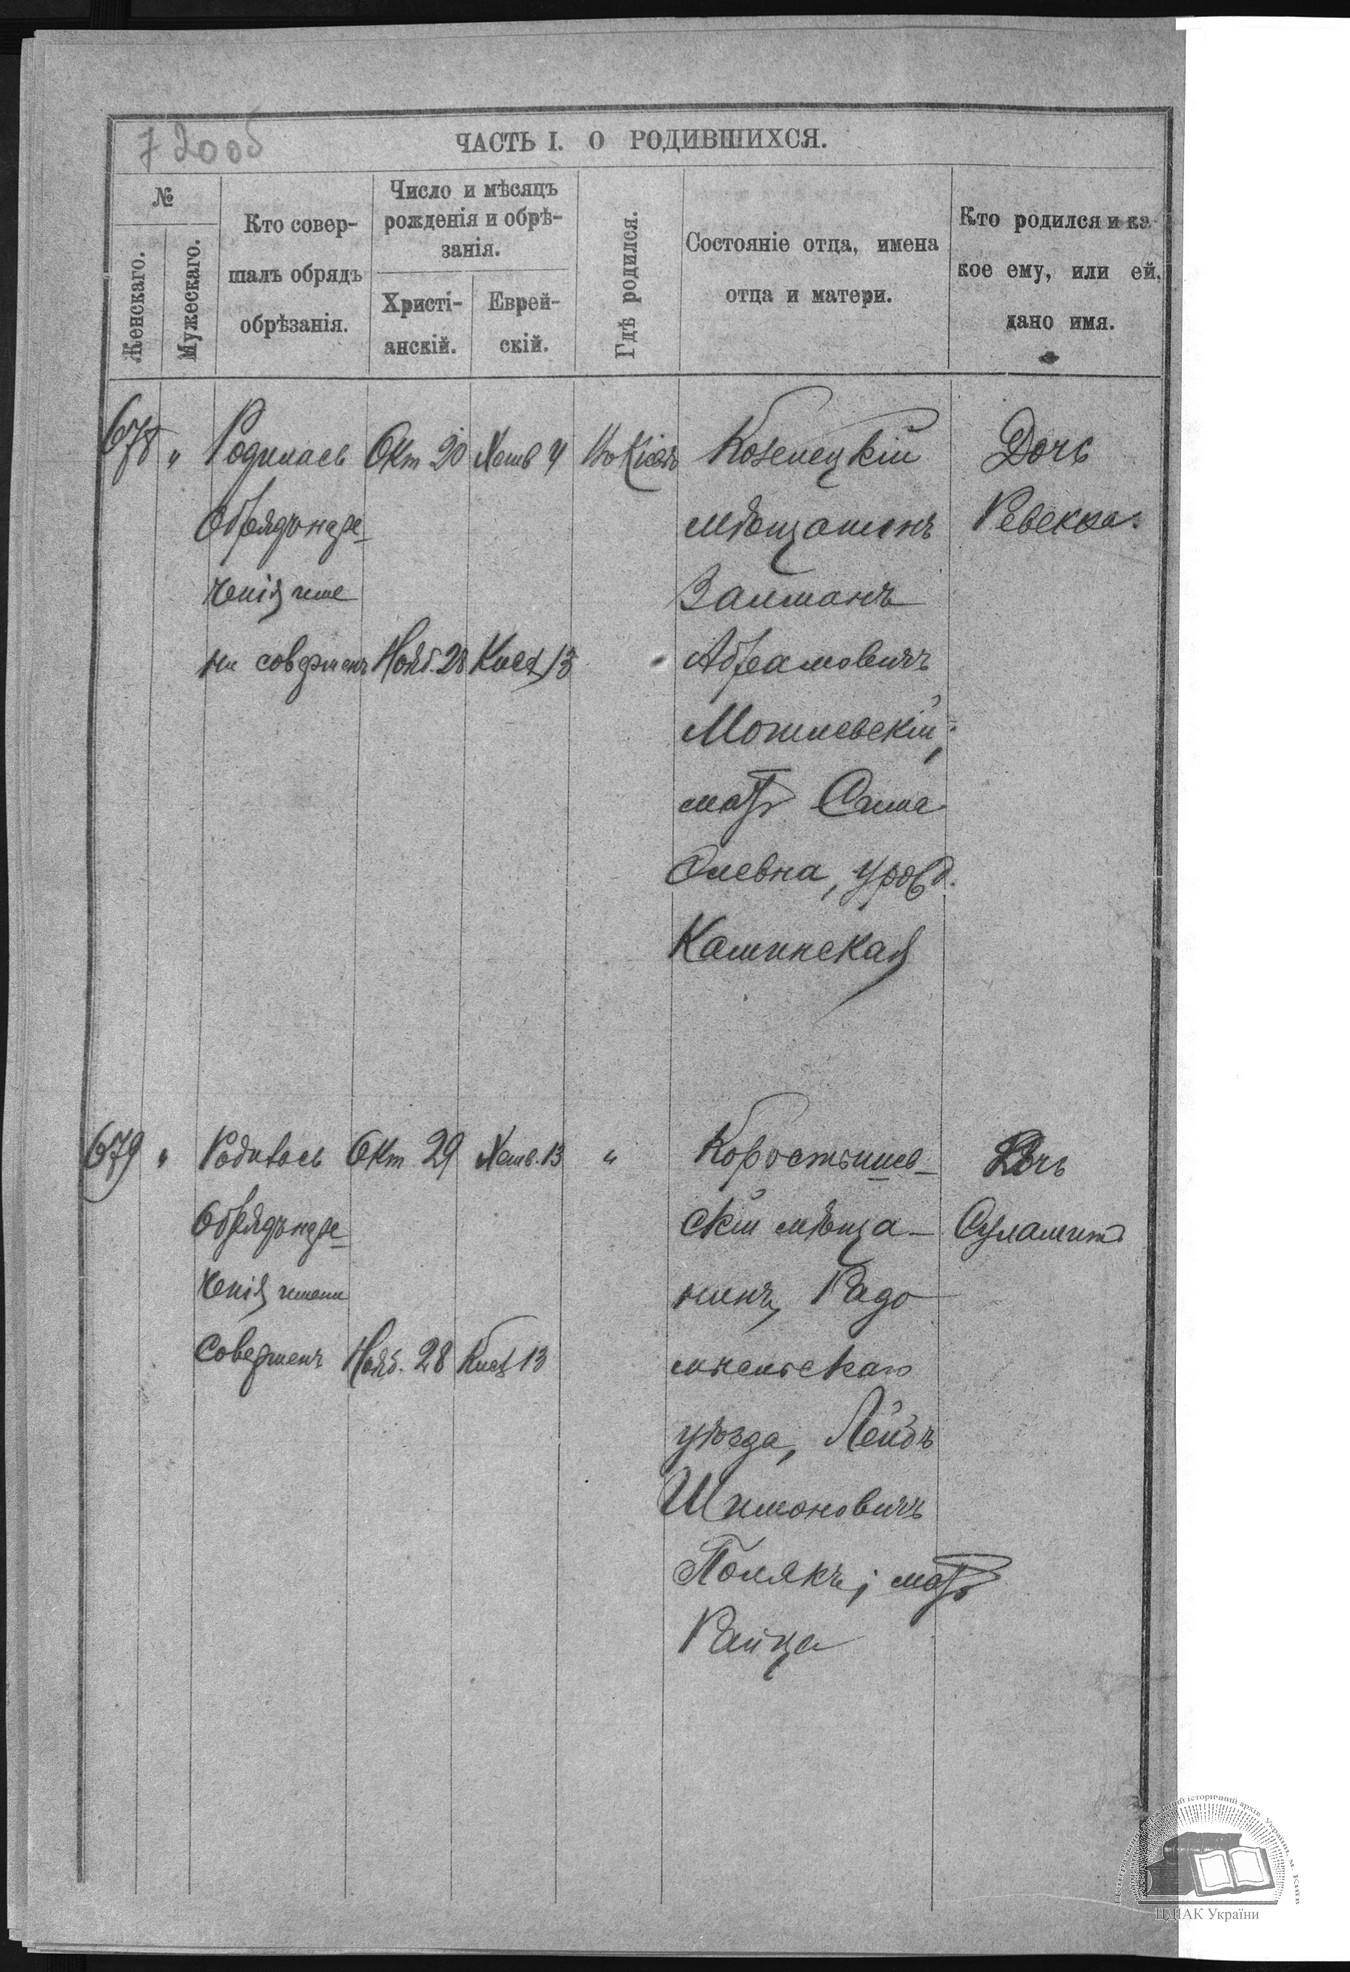 7 20 об
ЧАСТЬ I. О РОДИВШИХСЯ.
№
Женскаго.
Мужескаго.
Кто совер-
шалъ обрядъ
обрѣзанія.
Число и мѣсяцъ
рожденія и обрѣ-
занія.
Христі-
анскій.
Еврей-
скій.
Гдѣ родился.
Состояніе отца, имена
отца и матери.
Кто родился и ка-
кое ему, или ей,
дано имя.
678 " Родилась Окт 20 Хешв 4 Въ Кіевѣ
Обрядъ наре-
ченія име
ни совершенъ Нояб. 28 Кисл 13
Козелецкій
мѣщанинъ
Залманъ
Абрамовичъ
Могилевскій;
мать
Олевна, урожд.
Каминская
Дочь
Ревекка.
679 " Родилась Окт 29 Хешв. 13 "
Обрядъ наре-
ченія имени
совершенъ Нояб. 28 Кисл 13
Коростышев-
скій мѣща-
нинъ, Радо
мысльскаго
уѣзда, Лейбъ
Шимоновичъ
Полякъ; мать
Райца
Дочь
Суламит
ЦДІАК України